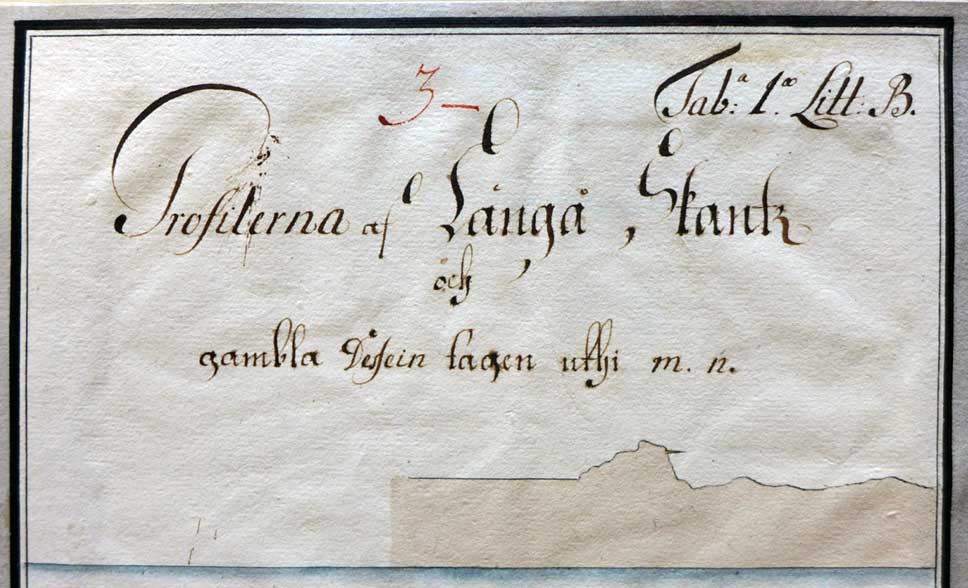 3 –
Tab:ª 1.ª Litt: B.
Profilerna af Långå, Skantz
och
gambla Dessein tagen uthi m. n.